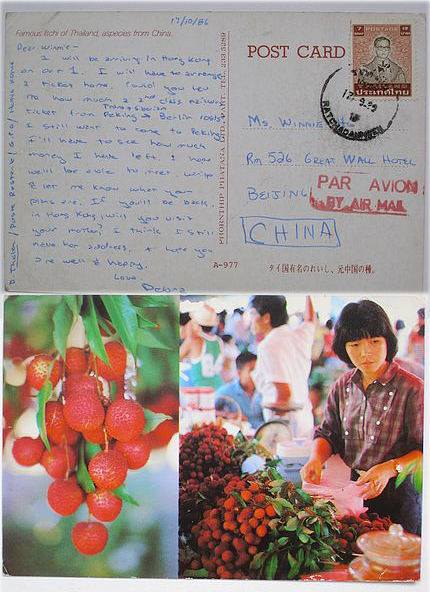 17/10/86
Famous litchi of Thailand, aspecies from China.
Dear Winnie-
I will be arriving in Hong Kong
on Oct 1. I will have to arrange
a ticket home. Could you let
me how much a 2nd class railway
Transsiberian
ticket from Peking → Berlin costs
I still want to come to Peking
I'll have to see how much
money I have left. I hope
we'll be able to meet
& let me know what your
plans are. If you'll be back
in Hong Kong, will you visit
your mother? I think I still
have her address. I hope you
are well & happy.
Love,
Debra
PHORNTHIP PHATANA LTD., PART. TEL. 233.5289
POST CARD
7 POSTAGE 7
ประเทศไทย
RATCHADAMNOEN
Ms. Winnie
Rm 526 Great Wall Hotel
Beijing
PAR AVION
BY AIR MAIL
CHINA
A-977
タイ国有名のれいし、元中国の種。